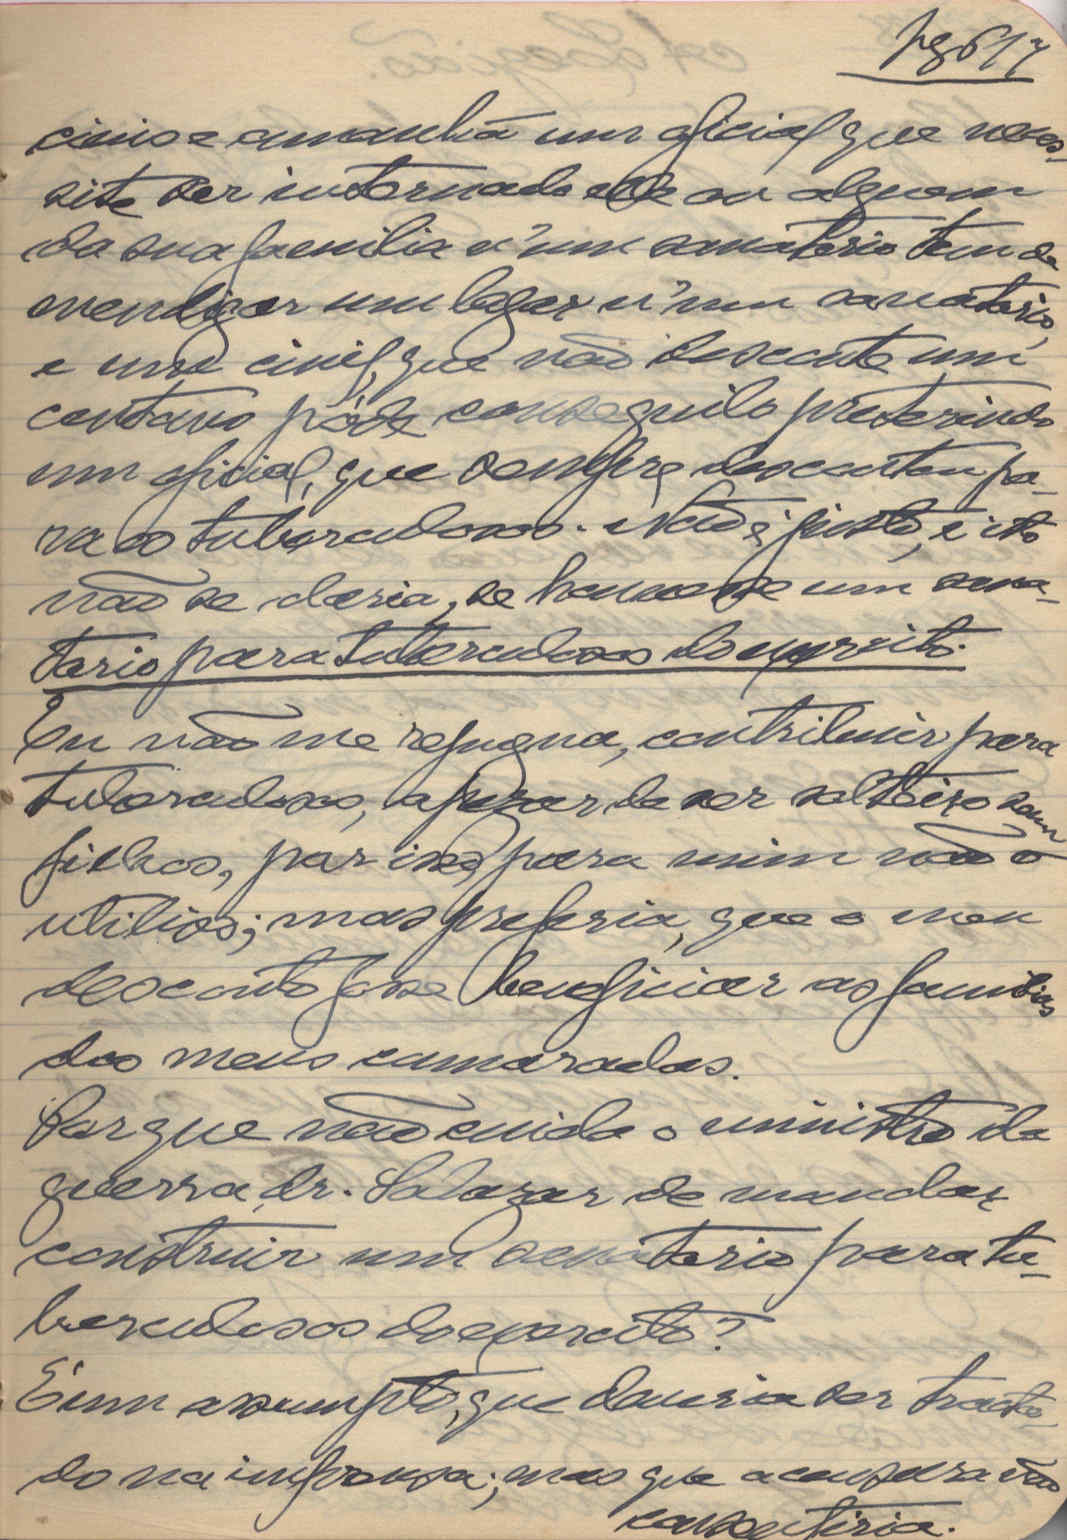 pg 617
civis e amanhã um oficial que neces-
site ser internado elle ou alguem
da sua familia n'um sanatorio tem de
mendigar um logar n'um sanatorio,
e um civil, que não desconte um
centavo póde conseguilo preterindo
um oficial, que sempre descontou pa-
ra os tuberculosos. Não é justo, e isto
não se daria, se houvesse um sana-
torio para tuberculosos do exercito.
Eu não me repugna, contribuir para
tuberculosos, apezar de ser solteiro sem
filhos, por isso para mim não o
utiliso; mas preferia, que o meu
desconto fosse beneficiar as familias
dos meus camaradas.
Porque não cuida o ministro da
guerra, dr. Salazar de mandar
construir um sanatorio para tu-
berculosos do exercito?
É um assumpto, que deveria ser tracta-
do na imprensa; mas que a censura não
consentiria.